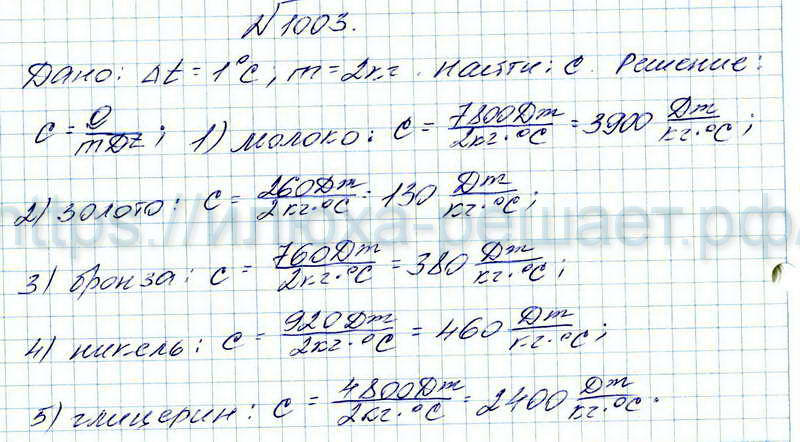 №1003.
Дано: Δt = 1°C; m = 2кг. Найти: c. Решение:
c = Q/mDt; 1) молоко: c = 7800Дж/2кг·°C = 3900 Дж/кг·°C;
2) золото: c = 260Дж/2кг·°C = 130 Дж/кг·°C;
https://илюха-решает.рф/
3) бронза: c = 760Дж/2кг·°C = 380 Дж/кг·°C;
4) никель: c = 920Дж/2кг·°C = 460 Дж/кг·°C;
5) глицерин: c = 4800Дж/2кг·°C = 2400 Дж/кг·°C.